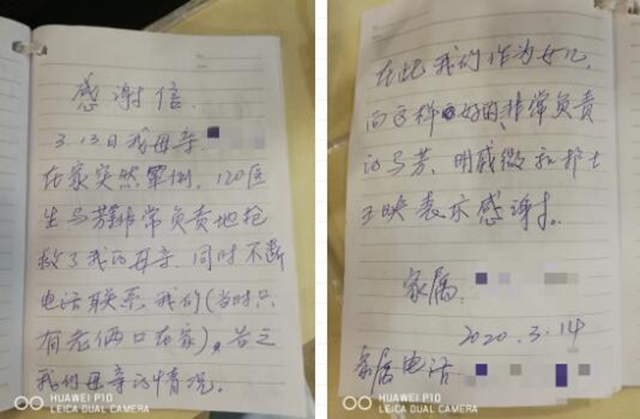 感谢信
3.13日我母亲
在家突然晕倒，120医
生马芳非常负责地抢
救了我的母亲，同时不断
电话联系我们(当时只
有老俩口在家)，告之
我们母亲的情况。
HUAWEI P10
LEICA DUAL CAMERA
在此我们作为女儿，
向这样好的、非常负责
的马芳、明戚微和护士
王映表示感谢。
家属
2020.3.14
家属电话
HUAWEI P10
LEICA DUAL CAMERA